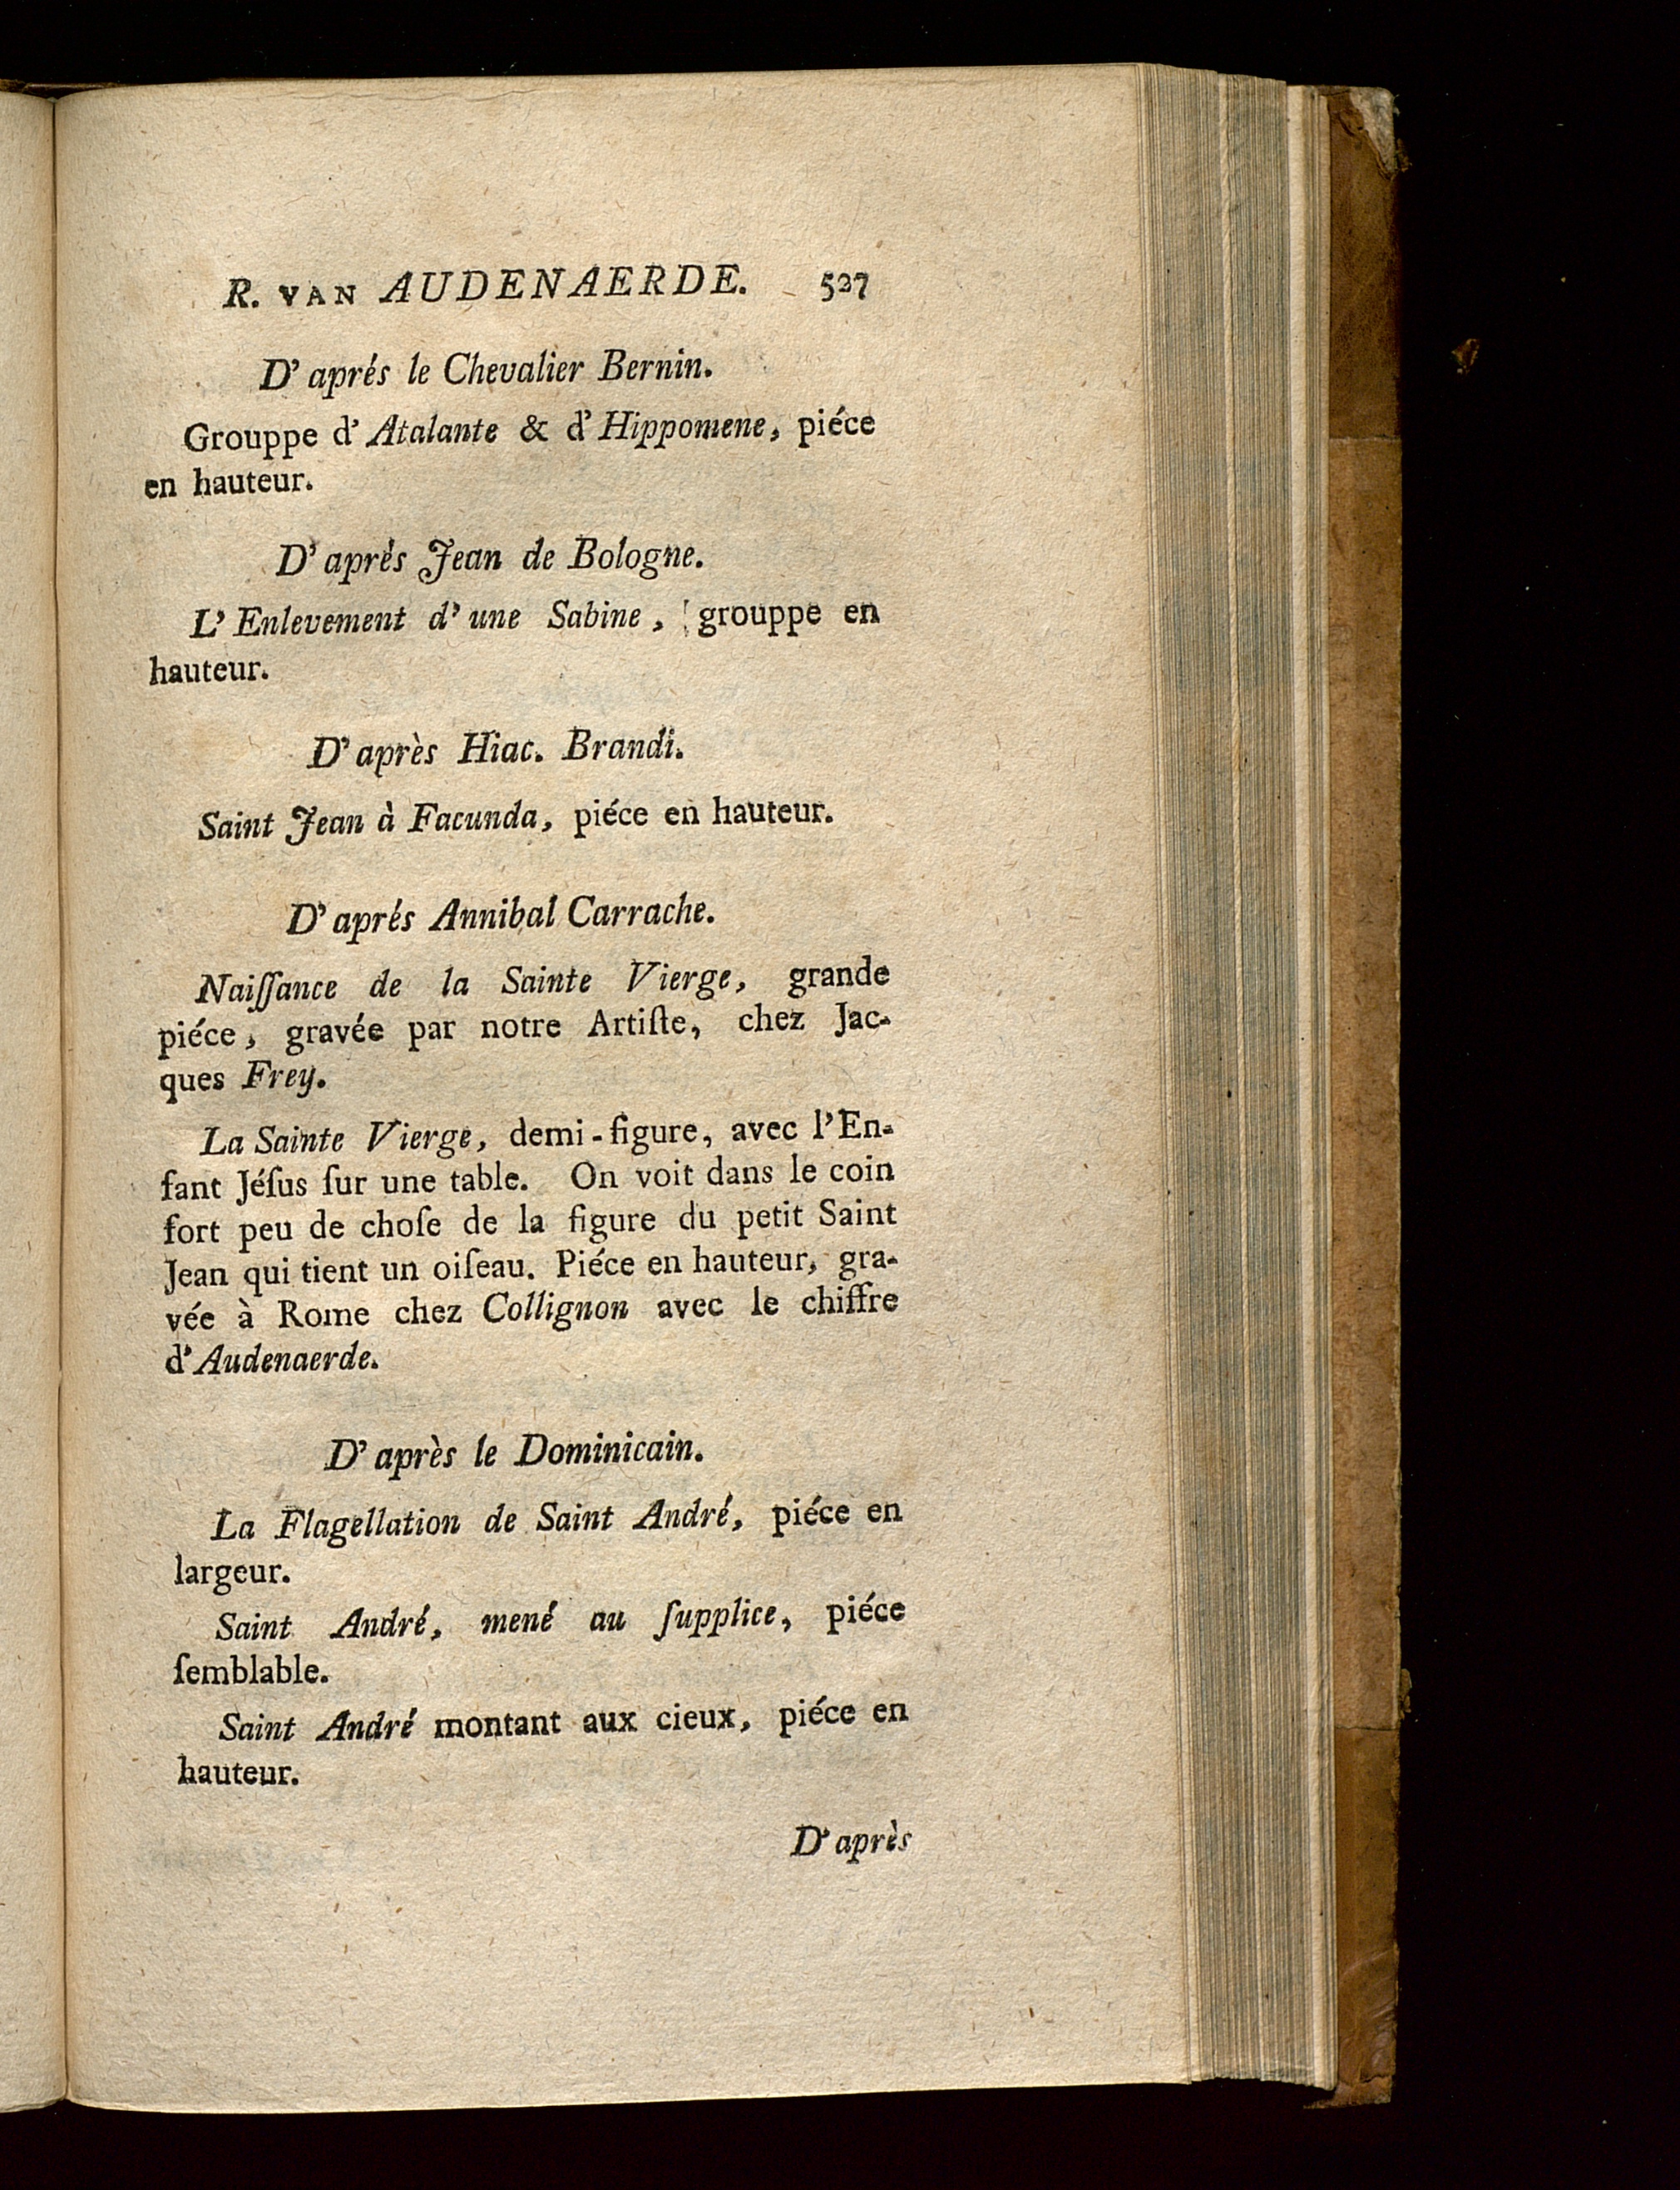 R. VAN AUDENAERDE. 527
D' aprés le Chevalier Bernin.
Grouppe d' Atalante & d' Hippomene, piéce
en hauteur.
D' après Jean de Bologne.
L' Enlevement d' une Sabine, grouppe en
hauteur.
D' après Hiac. Brandi.
Saint Jean à Facunda, piéce en hauteur.
D' aprés Annibal Carrache.
Naiſſance de la Sainte Vierge, grande
piéce, gravée par notre Artiſte, chez Jac-
ques Frey.
La Sainte Vierge, demi-figure, avec l'En-
fant Jéſus ſur une table. On voit dans le coin
fort peu de choſe de la figure du petit Saint
Jean qui tient un oiſeau. Piéce en hauteur, gra-
vée à Rome chez Collignon avec le chiffre
d' Audenaerde.
D' après le Dominicain.
La Flagellation de Saint André, piéce en
largeur.
Saint André, mené au ſupplice, piéce
ſemblable.
Saint André montant aux cieux, piéce en
hauteur.
D' après